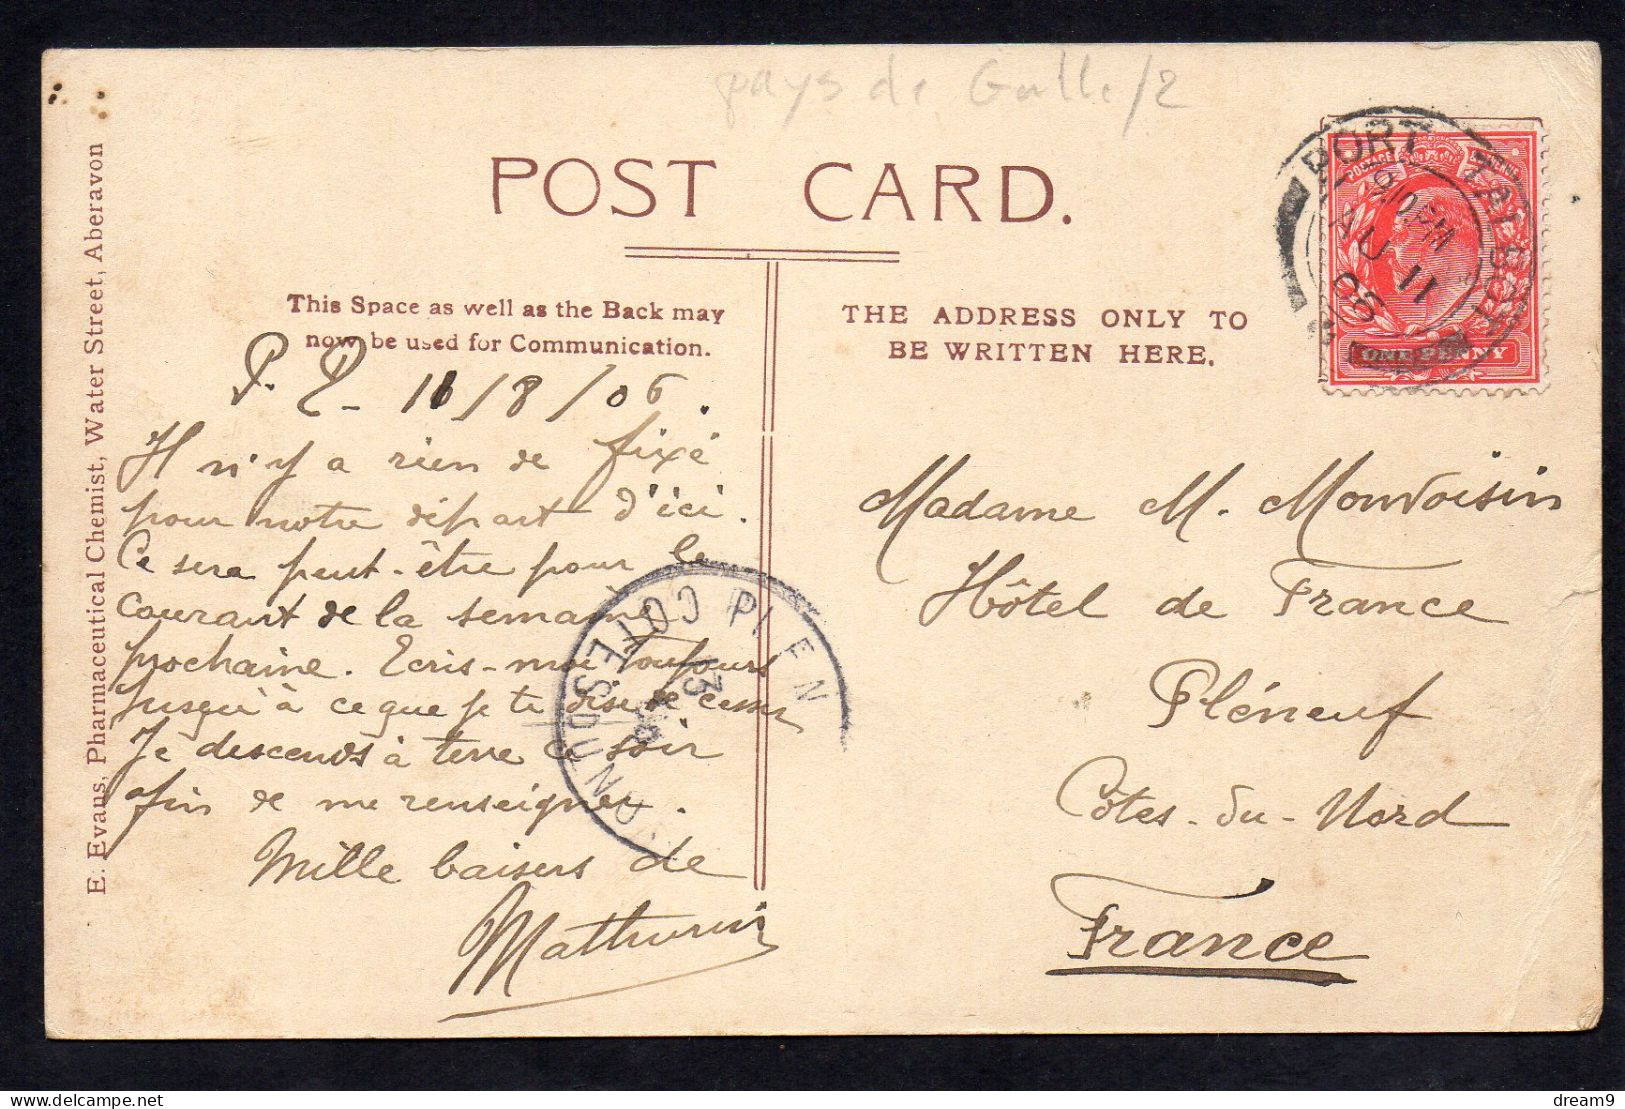 pays de Galle/2
POST CARD.
This Space as well as the Back may
now be used for Communication.
THE ADDRESS ONLY TO
BE WRITTEN HERE.
E. Evans, Pharmaceutical Chemist, Water Street, Aberavon
PORT TALBOT
AU 11
06
POSTAGE
ONE PENNY
11/8/06.
Il n'y a rien de fixé
pour notre départ d'ici.
Ce sera peut-être pour le
courant de la semaine
prochaine. Ecris-moi toujours
jusqu'à ce que je te dise de cesser
Je descends à terre ce soir
afin de me renseigner.
Mille baisers de
Mathurin
Madame M. Monvoisin
Hôtel de France
Pléneuf
Côtes-du-Nord
France
PLEN
COTES DU NORD
13
dream9